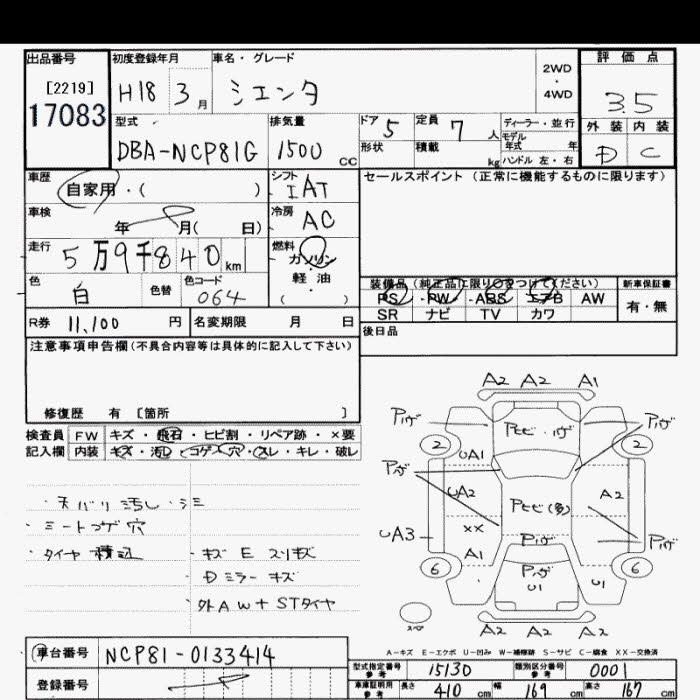 出品番号
[2219]
17083
初度登録年月
H18 3月
車名・グレード
シエンタ
2WD
・
4WD
評価点
3.5
外装 内装
D C
型式
DBA-NCP81G
排気量
1500 CC
ドア 5
定員 7人
形状
積載 kg
ディーラー・並行
モデル年式 年
ハンドル 左・右
車歴
自家用・( )
シフト
IAT
セールスポイント(正常に機能するものに限ります)
車検
年 月( 日)
冷房
AC
走行
5万9千840km
燃料
ガソリン
軽油
( ・ )
色
白
色替
色コード
064
装備品(純正品に限り○をつけてください)
新車保証書
PS・PW・ABS・エアB AW
SR ナビ TV カワ
有・無
R券 11,100 円
名変期限 月 日
後日品
注意事項申告欄(不具合内容等は具体的に記入して下さい)
修復歴 有 [箇所 ]
検査員記入欄
FW キズ・飛石・ヒビ割・リペア跡・×要
内装 キズ・汚レ・コゲ・穴・スレ・キレ・破レ
・天バリ汚し・シミ
・シートコゲ穴
・タイヤ積込
・キズ E スリキズ
・Dミラー キズ
・外AW+STタイヤ
A2 A2 A1
Pハゲ Pヒビ・ハゲ Pハゲ
2 2
UA1
Pハゲ
UA2 Pヒビ(多) A2
UA3 XX Pハゲ Pハゲ
A1
6 6
Pハゲ
U1 U1
スペア
A2 A2 A2
A-キズ E-エクボ U-凹み W-補修跡 S-サビ C-腐食 XX-交換済
車台番号
NCP81-0133414
登録番号
型式指定番号 参考 15130
類別区分番号 参考 0001
車庫証明用 参考 長さ 410 cm 幅 169 cm 高さ 167 cm